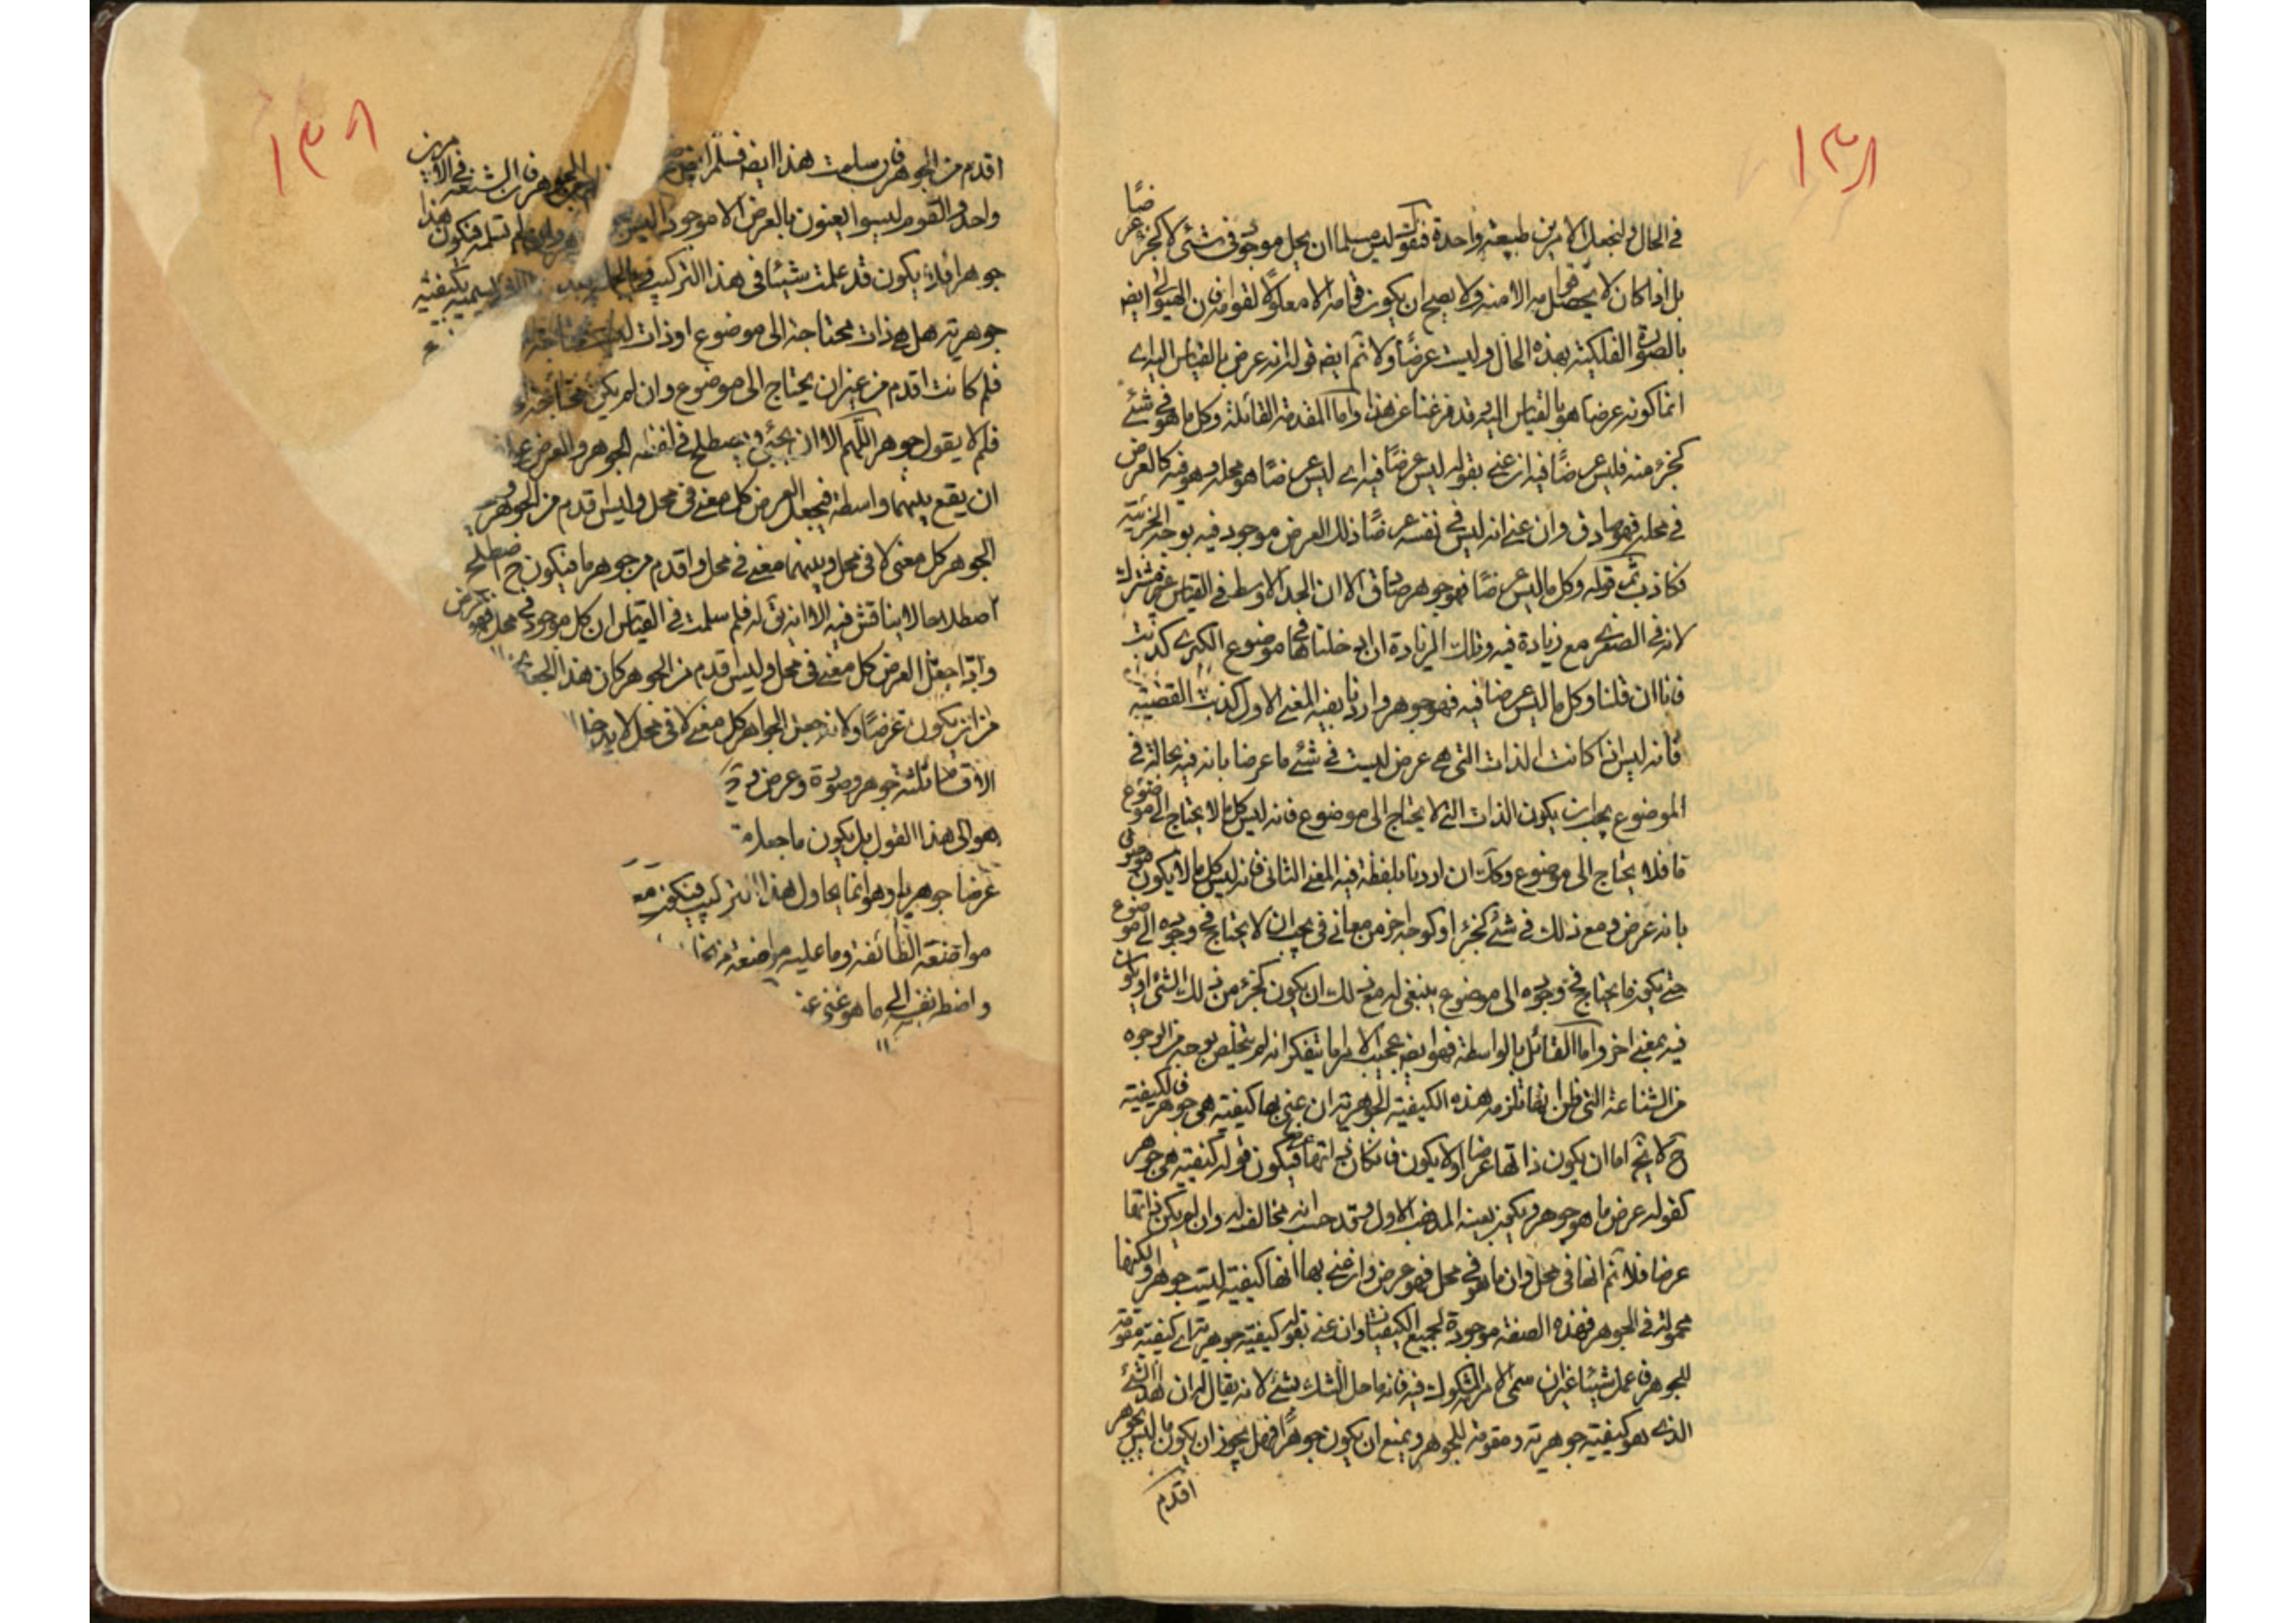 ١٣٨
في الحال ولنجعل الامرين طبيعة واحدة فنقول ليس مسلما ان يجعل موجود في شئ لا كجزء عرضًا
بل اذا كان لا يحصل قوامه الا منه ولا يصح ان يكون قوامه الا معلولا لقوامه فان الهيولى ايضا
بالصورة الفلكية بهذه الحال وليست عرضًا ولا نم ايضا قوله انه عرض بالقياس اليه اى
انما كونه عرضا هو بالقياس اليه وقد فرغنا عن هذا واما المقدمة القائلة وكل ما هو في شئ
كجزء منه فليس عرضًا فيه ان عنى بقوله ليس عرضًا فيه اى ليس عرضًا هو محله وهو فيه كالعرض
في محله فهو صادق وان عنى انه ليس في نفسه عرضًا ذلك العرض موجود فيه بوجه الجزئية
فكاذب ثم قوله وكل ما ليس عرضًا فهو جوهر صادق الا ان الحد الاوسط في القياس غير مشترك
لانه في الصغرى مع زيادة فيه وتلك الزيادة ان ادخلناها في موضوع الكبرى كذبت
فانا ان قلنا وكل ما ليس عرضا فيه فهو جوهر واردنا بفيه المعنى الاول كذبت القضية
فانه ليس اذا كانت الذات التى هي عرض ليست في شئ ما عرضا بانه فيه بحاله في
الموضوع يجب ان يكون الذات التى لا يحتاج الى موضوع فانه ليس كل ما لا يحتاج الى موضوع
ما فلا يحتاج الى موضوع وكك ان اردنا بلفظة فيه المعنى الثانى فانه ليس كل ما لا يكون هو في
بانه عرض ومع ذلك في شئ كجزء او كوجه اخر من معانى في يجب ان لا يحتاج في وجوده الى موضوع
حتى يكون ما يحتاج في وجوده الى موضوع ينبغى له مع ذلك ان يكون كجزء من ذلك الشئ او يكون
فيه بمعنى اخر واما القائل بالواسطة فهو ايضا عجيب الامر ما يتفكر انه لم يتخلص بوجه من الوجوه
من الشناعة التى ظن انها تلزمه هذه الكيفية الجوهرية ان عنى بها كيفية هى جوهر فالكيفية
ح لا يخ اما ان يكون ذاتها عرضا اولا يكون فان كان ذاتها عرضا فيكون قوله كيفية هى جوهر
كقوله عرض ما هو جوهر ويكون بعينه المذهب الاول وقد حسب انه مخالف له وان لم يكن ذاتها
عرضا فلا نم انها في محل وان ما هو في محل فهو عرض وان عنى بها انها كيفية ليست جوهر ولكنها
محمولة في الجوهر فهذه الصفة موجودة لجميع الكيفيات وان عنى بقوله كيفية جوهرية اى كيفية مقومة
للجوهر فما عمل شيئا غير ان سمى الامر المشكوك فيه فانه ما حل الشك بشئ لانه يقال له ان هذا الشئ
الذى هو كيفية جوهرية ومقومة للجوهر ويمنع ان يكون جوهرًا فهل يجوز ان يكون ما ليس بجوهر
اقدم
١٣٨
اقدم من الجوهر فان سلمت هذا ايضا فسلم ان الجوهر فان الشنعة في الامرين
واحد والقوم ليسوا يعنون بالعرض الا موجودا ليس وان لم تسلمه فيكون هذا
جوهرا فلا يكون قد عملت شيئا في هذا التركيب تسميه بكيفية
جوهرية هل هى ذات محتاجة الى موضوع او ذات ليست محتاجة
فلم كانت اقدم من غير ان يحتاج الى موضوع وان لم يكن محتاجة
فلم لا يقول جوهر اللهم الا ان يجئ يصطلح في لفظة الجوهر والعرض على
ان يقع بينهما واسطة فيجعل العرض كل معنى في محل وليس اقدم من الجوهر و
الجوهر كل معنى لا في محل وبينهما معنى في محل واقدم من جوهر ما فيكون ح اصطلح
اصطلاحا لا يناقش فيه الا انه يق له فلم سلمت في القياس ان كل موجود في محل فهو عرض
واذا جعل العرض كل معنى في محل وليس اقدم من الجوهر كان هذا
من ان يكون عرضًا ولانه جعل الجواهر كل معنى لا في محل لا يدخل
الاقسام ثلثة جوهر وصورة وعرض
هو الى هذا القول بل يكون ما جعله
عرضا جوهريا وهو انما يحاول هذا التركيب فيكون
مواضعة الطائفة وما عليه مواضعة
واضطر نفسه الى ما هو غنى عنه